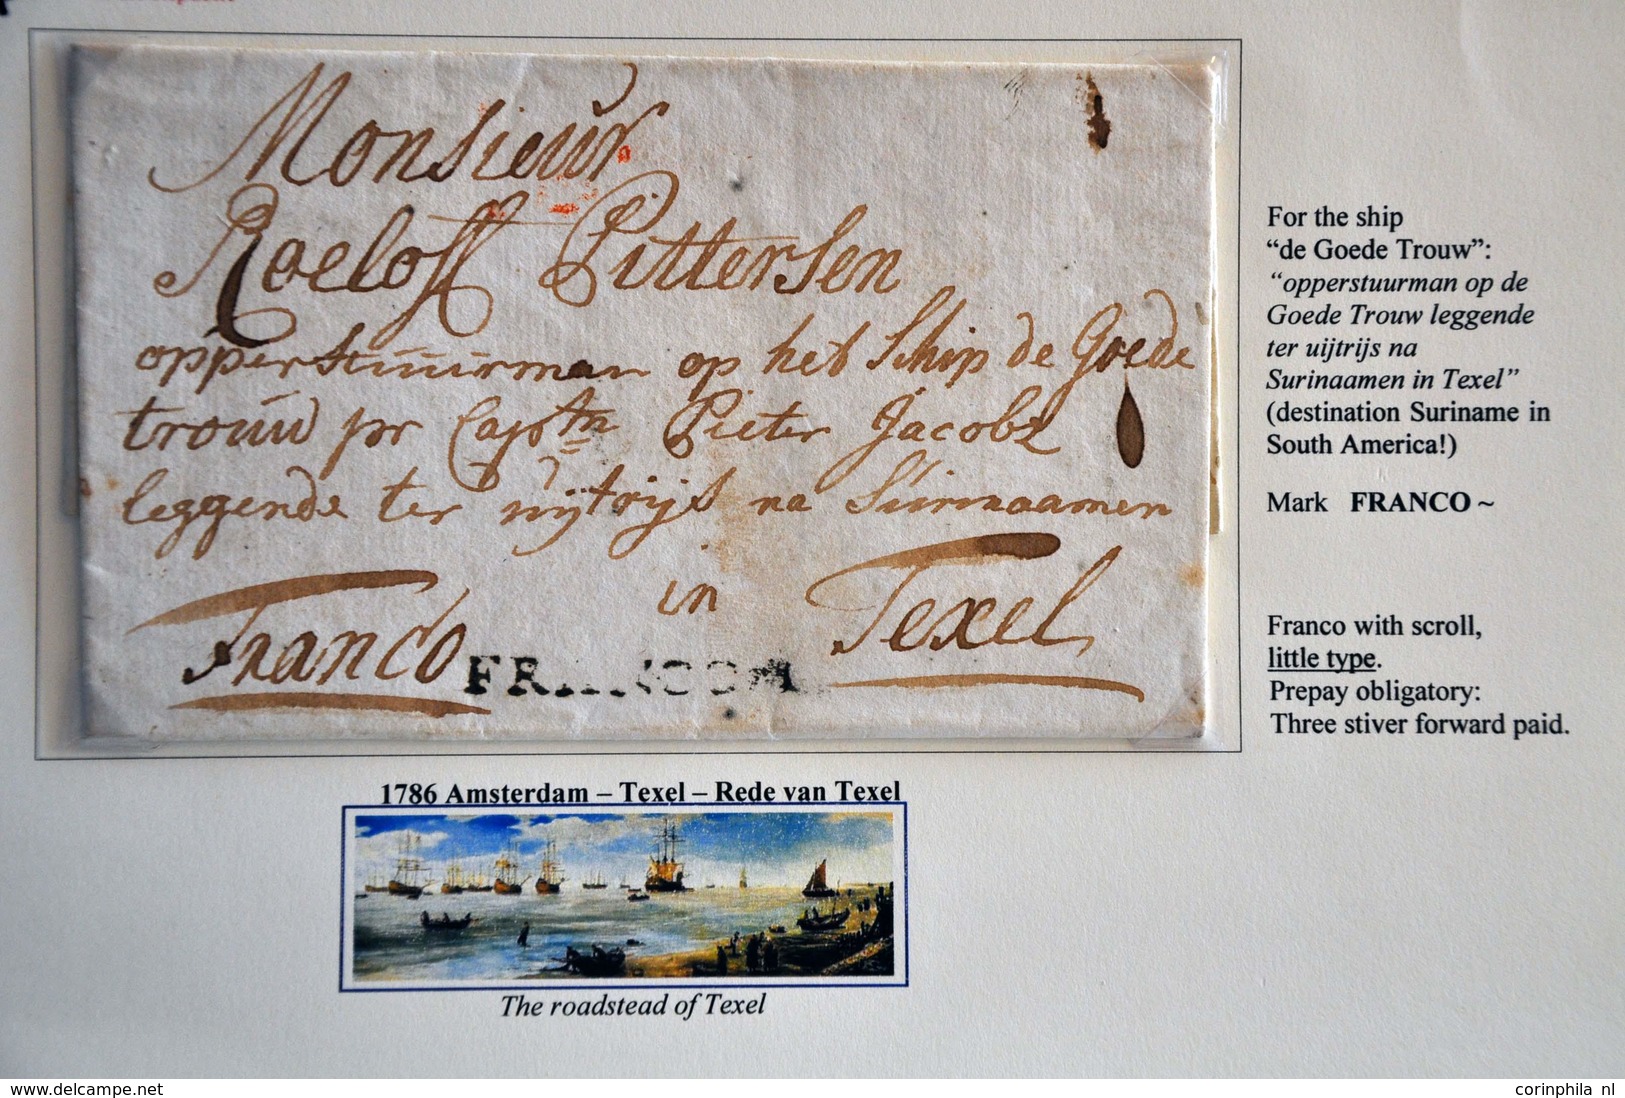 Monsieur
Roeloff Pittersen
opperstuurman op het Schip de Goede
trouw pr Captn Pieter Jacobz
leggende ter uijtrijs na Surinaamen
in Texel
Franco
FRANCO
For the ship
“de Goede Trouw”:
“opperstuurman op de
Goede Trouw leggende
ter uijtrijs na
Surinaamen in Texel”
(destination Suriname in
South America!)
Mark FRANCO ~
Franco with scroll,
little type.
Prepay obligatory:
Three stiver forward paid.
1786 Amsterdam – Texel – Rede van Texel
The roadstead of Texel
www.delcampe.net
corinphila nl